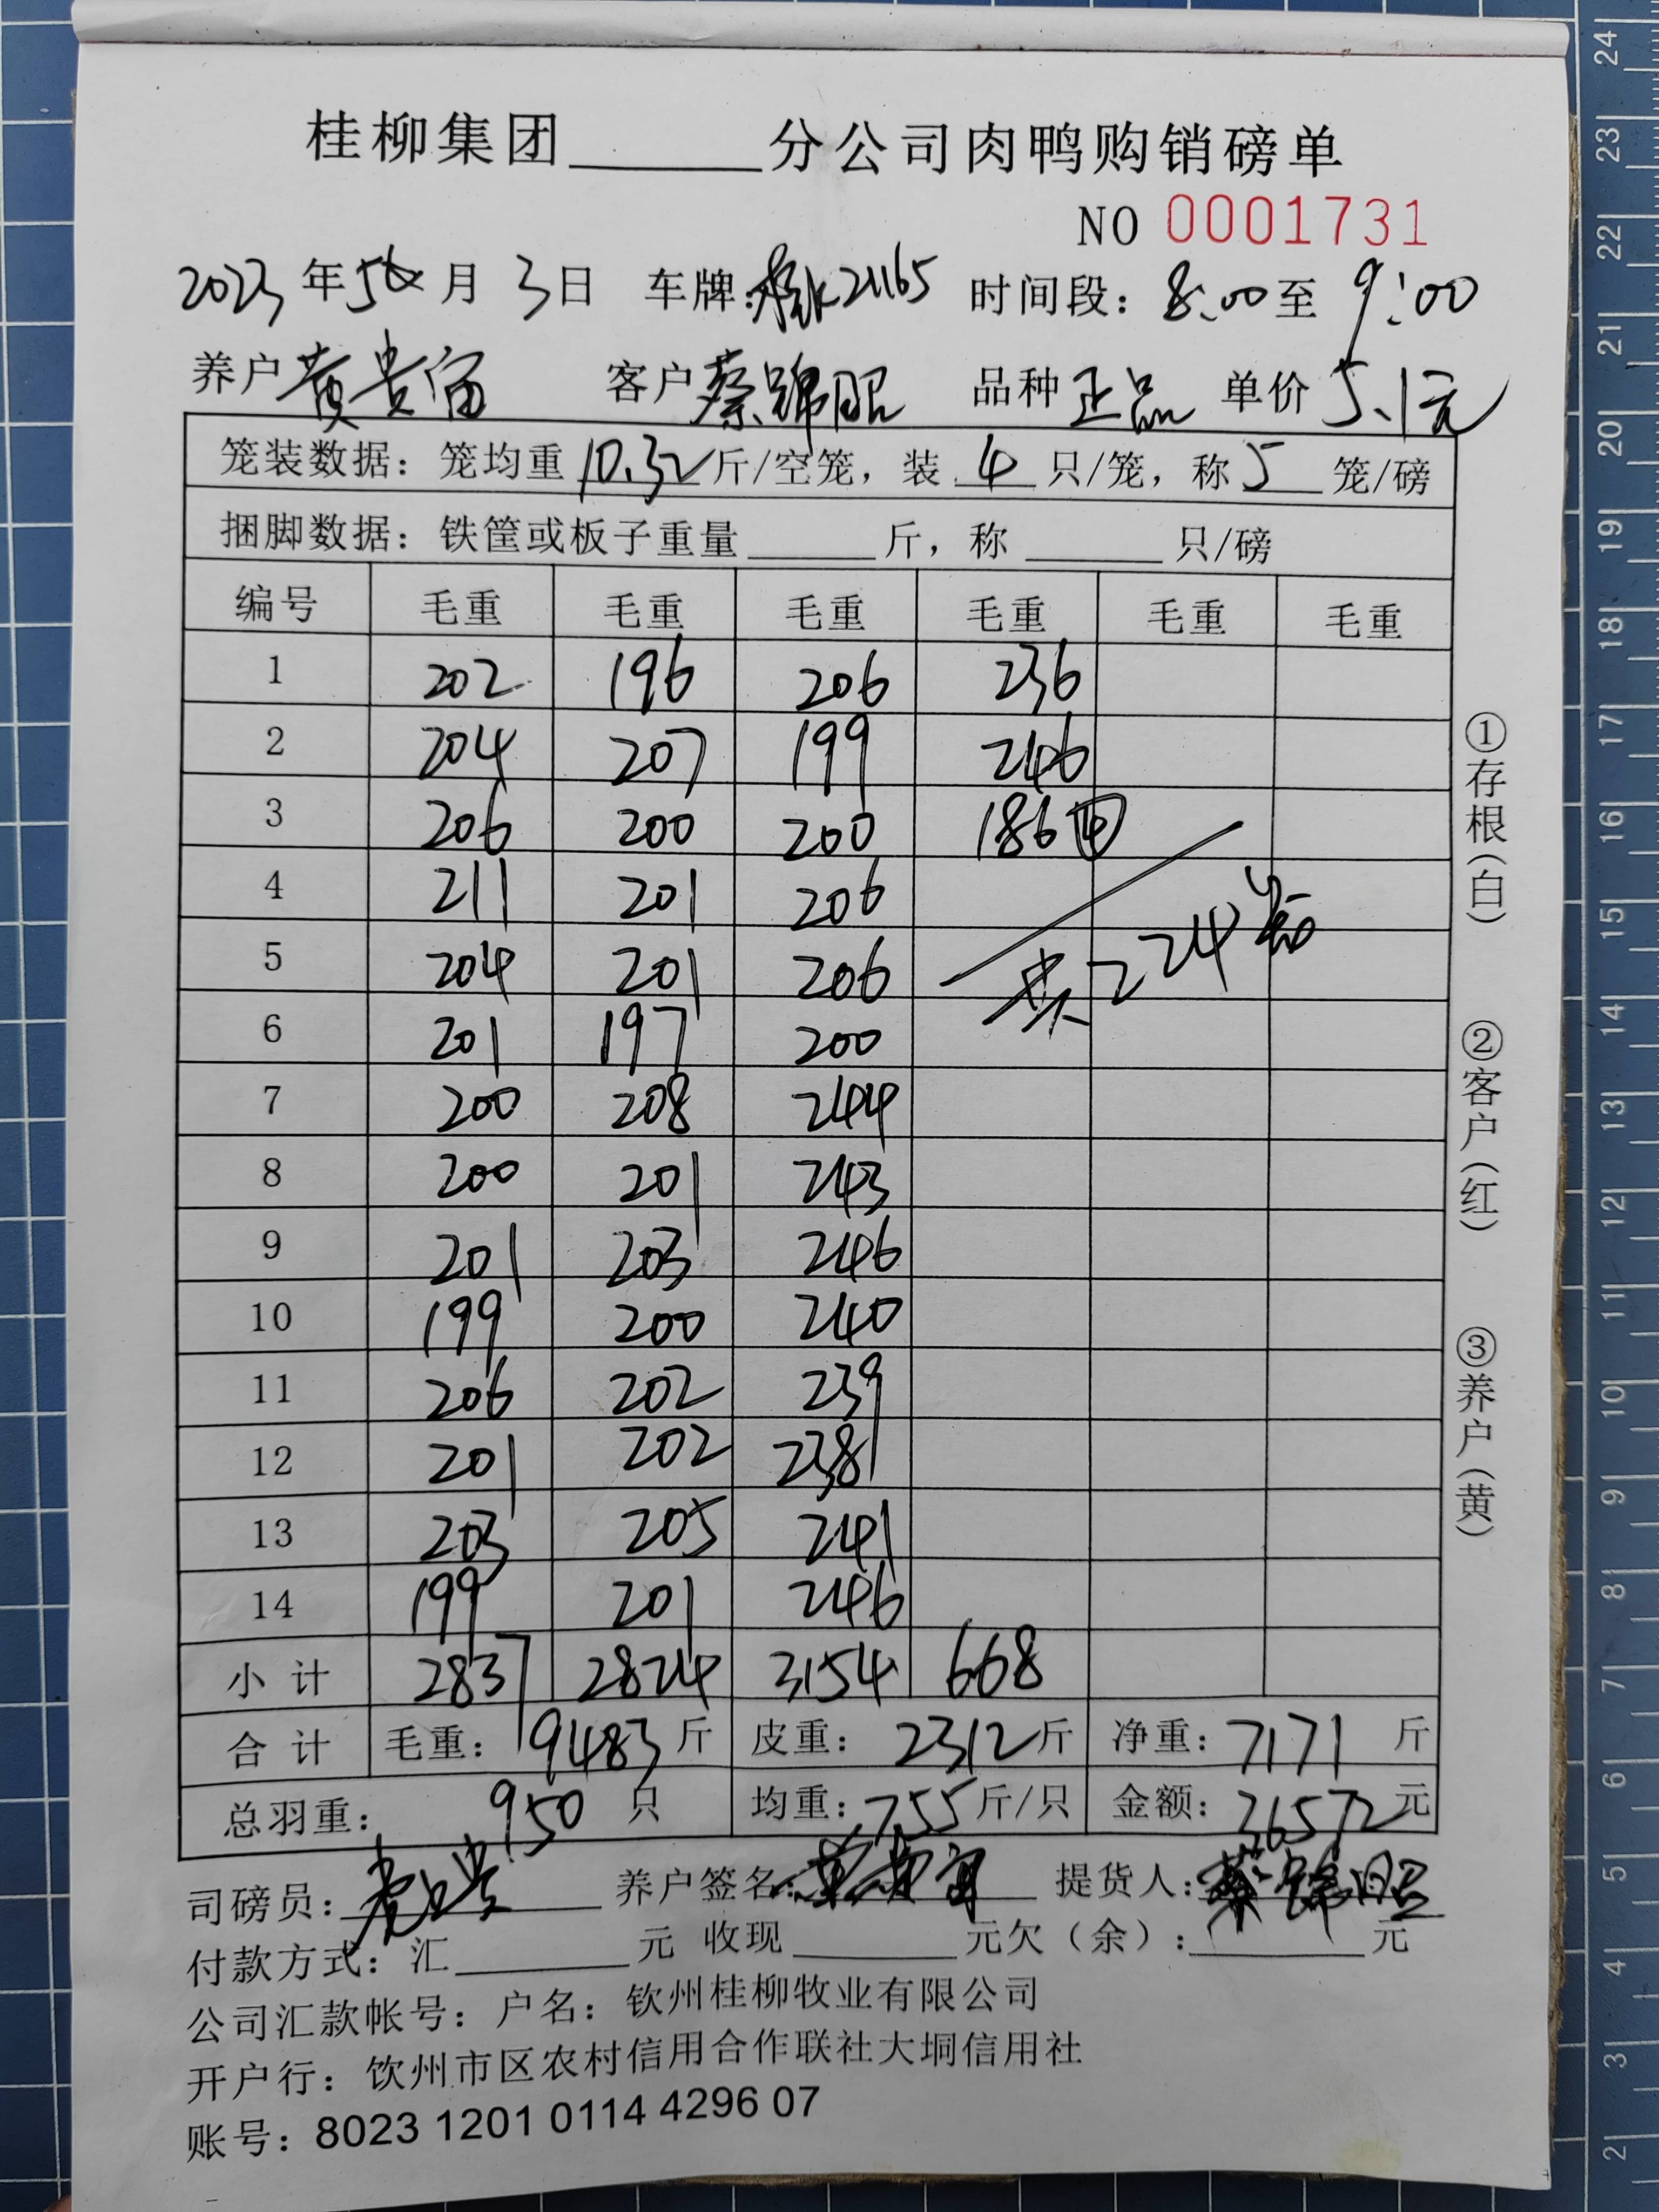 桂柳集团______分公司肉鸭购销磅单
NO 0001731
2023年5月3日 车牌:21165 时间段:8:00至9:00
养户黄贵富 客户蔡锦昭 品种正品 单价5.1元
笼装数据:笼均重10.32斤/空笼,装4只/笼,称5笼/磅
捆脚数据:铁筐或板子重量______斤,称______只/磅
编号 毛重 毛重 毛重 毛重 毛重 毛重
1 202 196 206 236
2 204 207 199 246
3 206 200 200 186④
4 211 201 206
5 204 201 206 共224笼
6 201 197 200
7 200 208 244
8 200 201 243
9 201 203 246
10 199 200 240
11 206 202 239
12 201 202 238
13 203 205 241
14 199 201 246
小计 2837 2824 3154 668
合计 毛重:9483斤 皮重:2312斤 净重:7171斤
总羽重:950只 均重:755斤/只 金额:36572元
司磅员: 养户签名: 提货人:蔡锦昭
付款方式:汇______元 收现______元欠(余):______元
公司汇款帐号:户名:钦州桂柳牧业有限公司
开户行:钦州市区农村信用合作联社大垌信用社
账号:8023 1201 0114 4296 07
①存根(白) ②客户(红) ③养户(黄)
24
23
22
21
20
19
18
17
16
15
14
13
12
11
10
9
8
7
6
5
4
3
2